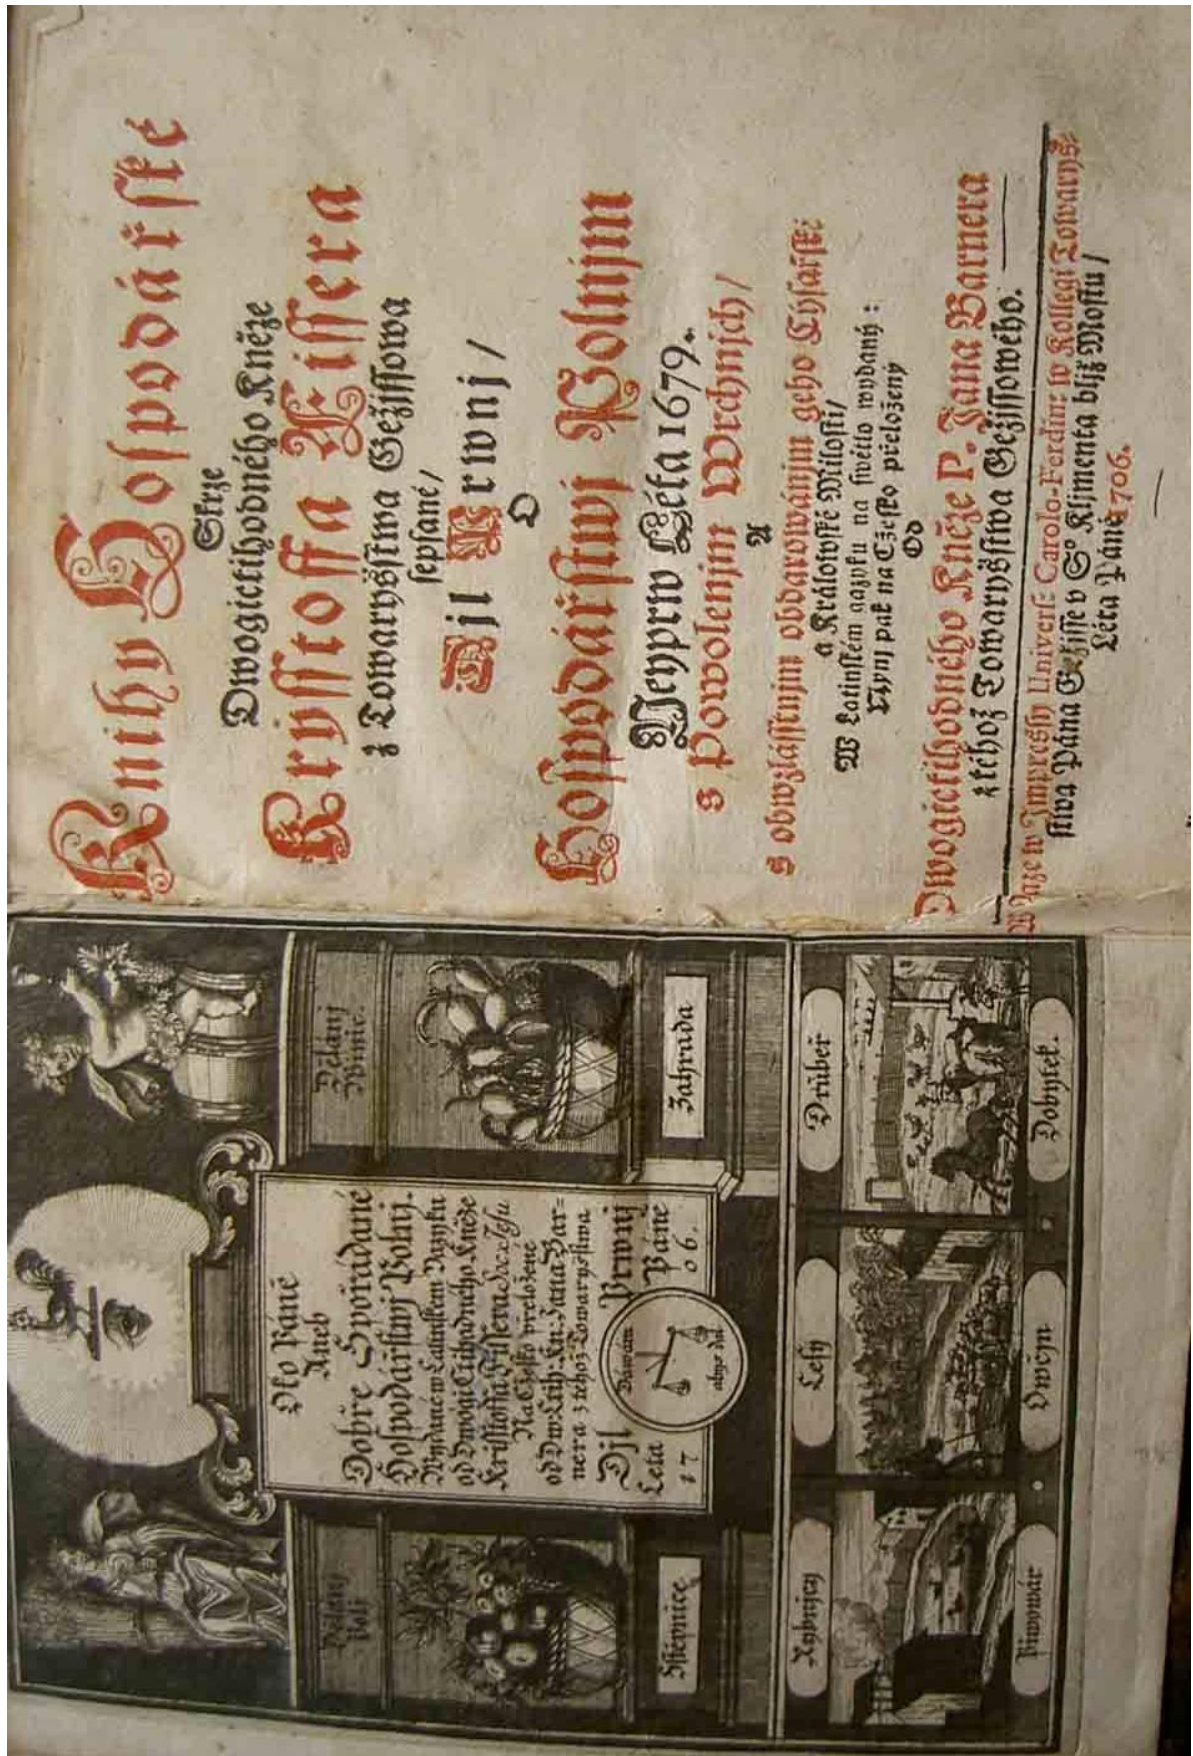 Oko Páně
Aneb
Dobře Spořádané
Hospodářstwj Polnj.
Wydáné w Latinskem Jazyku
od Dwogi Ctihodneho Kněze
Krisstoffa Fissera
Na Cžesko přeložené
od Dw: Ctih: Kn: Jana Bar=
nera z tehož Towaryšstwa
Djl Prwnj
Léta Páně
17 06.
Dáwám
abys dal
Dělánj
Polj
Dělánj
Winic.
Sstěpnice
Zahrada
Rybnjcy
Lesy
Drůbeř
Piwowár
Owčjn
Dobytek.
Knihy Hospodářské
Skrze
Dwogictihodného Kněze
Krysstoffa Fissera
z Towaryšstwa Gežissowa
sepsané/
Djl Prwnj/
O
Hospodářstwj Polnjm
Neyprw Léta 1679.
s Powolenjm Wrchnjch/
A
s obwzlásstnjm obdarowánjm geho Cýsařské
a Králowské Milosti/
W Latinském gazyku na swětlo wydaný:
Nynj pak na Cžesko přeložený
Od
Dwogictihodného Kněze P. Jana Barnera
z téhož Towaryšstwa Gežissowého.
W Praze w Jmpressy Univers: Carolo-Ferdin: w Kollegi Towaryš:
stwa Pána Gežisse v S° Klimenta bljž Mostu/
Léta Páně 1706.